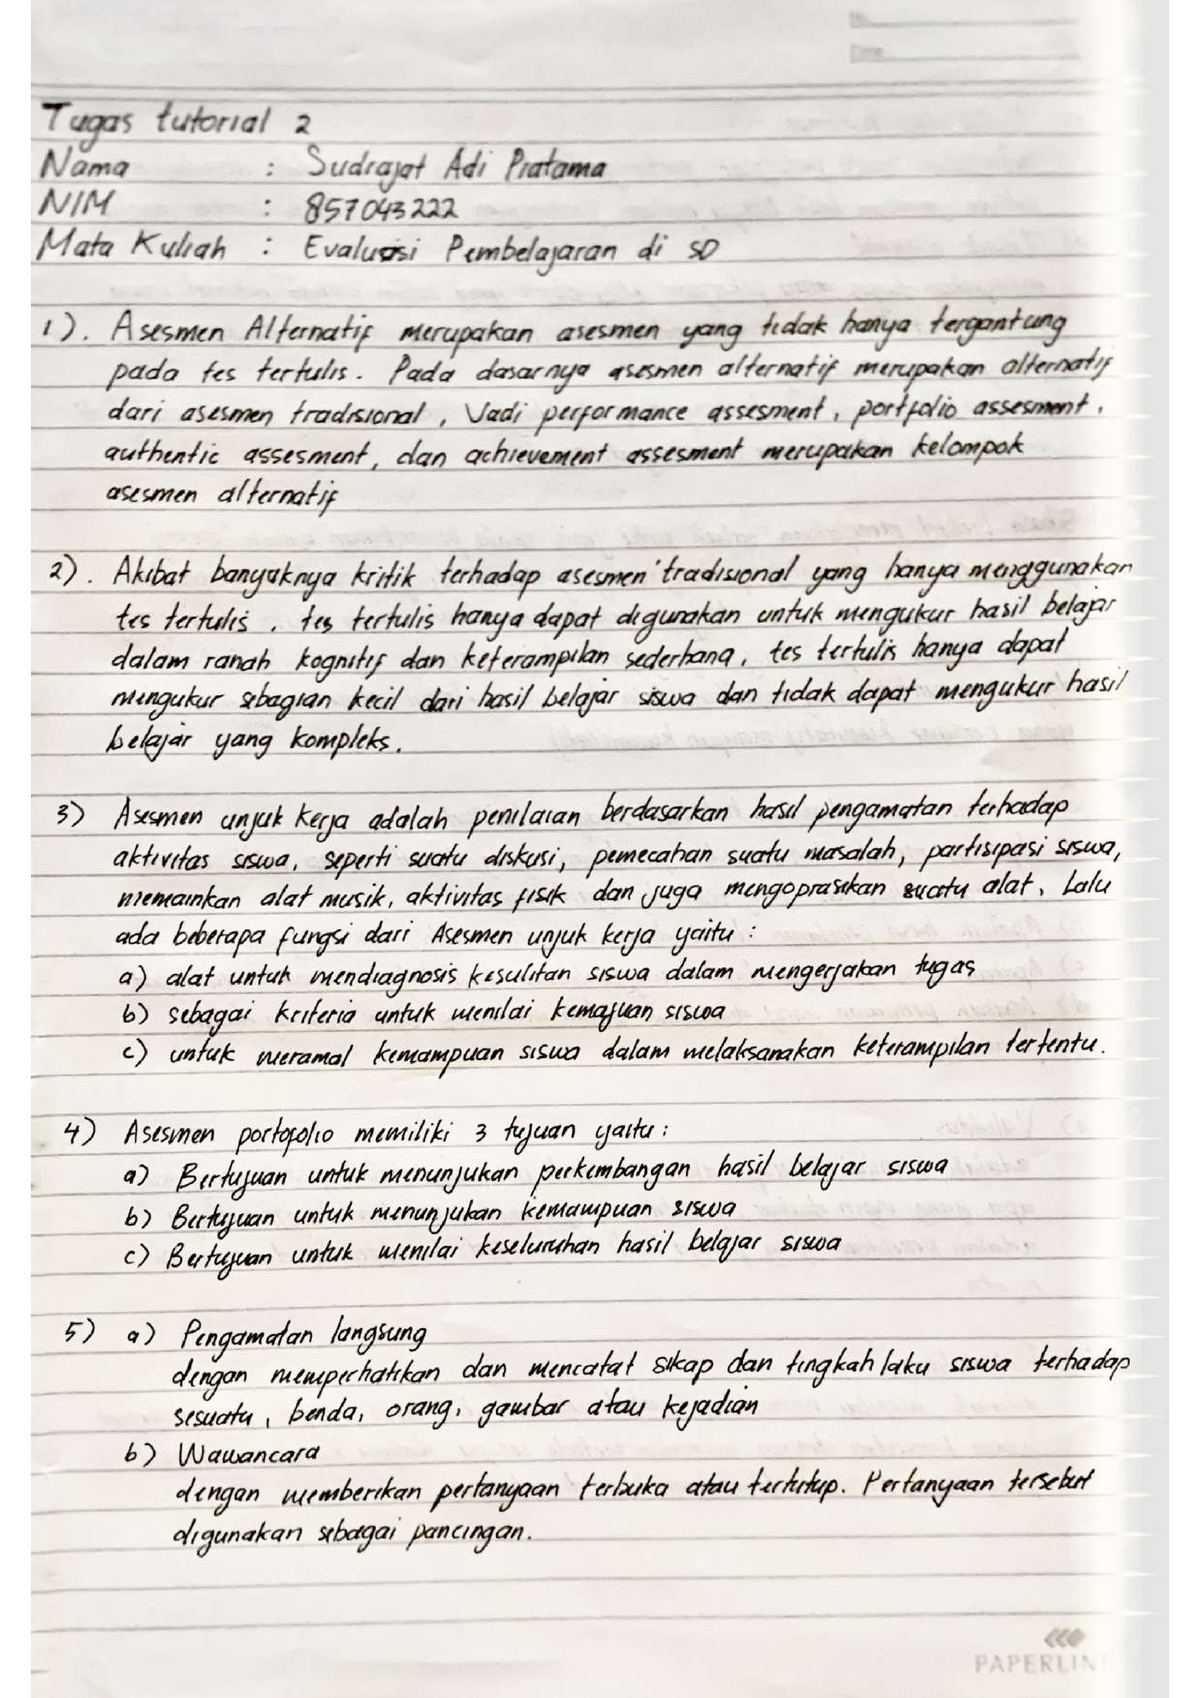 No
Date
Tugas tutorial 2
Nama : Sudrajat Adi Pratama
NIM : 857043222
Mata Kuliah : Evaluasi Pembelajaran di SD
1). Asesmen Alternatif merupakan asesmen yang tidak hanya tergantung
pada tes tertulis. Pada dasarnya asesmen alternatif merupakan alternatif
dari asesmen tradisional, Jadi performance assesment, portfolio assesment,
authentic assesment, dan achievement assesment merupakan kelompok
asesmen alternatif
2). Akibat banyaknya kritik terhadap asesmen tradisional yang hanya menggunakan
tes tertulis. tes tertulis hanya dapat digunakan untuk mengukur hasil belajar
dalam ranah kognitif dan keterampilan sederhana, tes tertulis hanya dapat
mengukur sebagian kecil dari hasil belajar siswa dan tidak dapat mengukur hasil
belajar yang kompleks.
3) Asesmen unjuk kerja adalah penilaian berdasarkan hasil pengamatan terhadap
aktivitas siswa, seperti suatu diskusi, pemecahan suatu masalah, partisipasi siswa,
memainkan alat musik, aktivitas fisik dan juga mengoprasikan suatu alat, Lalu
ada beberapa fungsi dari Asesmen unjuk kerja yaitu :
a) alat untuk mendiagnosis kesulitan siswa dalam mengerjakan tugas
b) sebagai kriteria untuk menilai kemajuan siswa
c) untuk meramal kemampuan siswa dalam melaksanakan keterampilan tertentu.
4) Asesmen portofolio memiliki 3 tujuan yaitu :
a) Bertujuan untuk menunjukan perkembangan hasil belajar siswa
b) Bertujuan untuk menunjukan kemampuan siswa
c) Bertujuan untuk menilai keseluruhan hasil belajar siswa
5) a) Pengamatan langsung
dengan memperhatikan dan mencatat sikap dan tingkah laku siswa terhadap
sesuatu, benda, orang, gambar atau kejadian
b) Wawancara
dengan memberikan pertanyaan terbuka atau tertutup. Pertanyaan tersebut
digunakan sebagai pancingan.
PAPERLIN